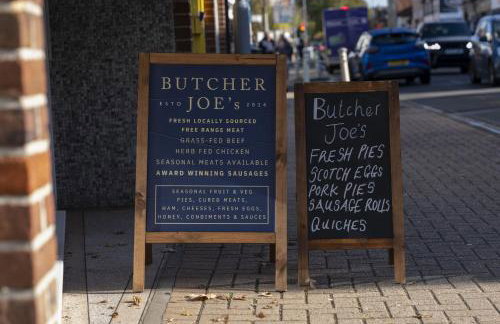 BUTCHER
JOE's
ESTD 2024
FRESH LOCALLY SOURCED
FREE RANGE MEAT
GRASS-FED BEEF
HERB FED CHICKEN
SEASONAL MEATS AVAILABLE
AWARD WINNING SAUSAGES
SEASONAL FRUIT & VEG
PIES, CURED MEATS,
HAM, CHEESES, FRESH EGGS,
HONEY, CONDIMENTS & SAUCES
Butcher
Joe's
FRESH PIES
SCOTCH EGGS
PORK PIES
SAUSAGE ROLLS
QUICHES